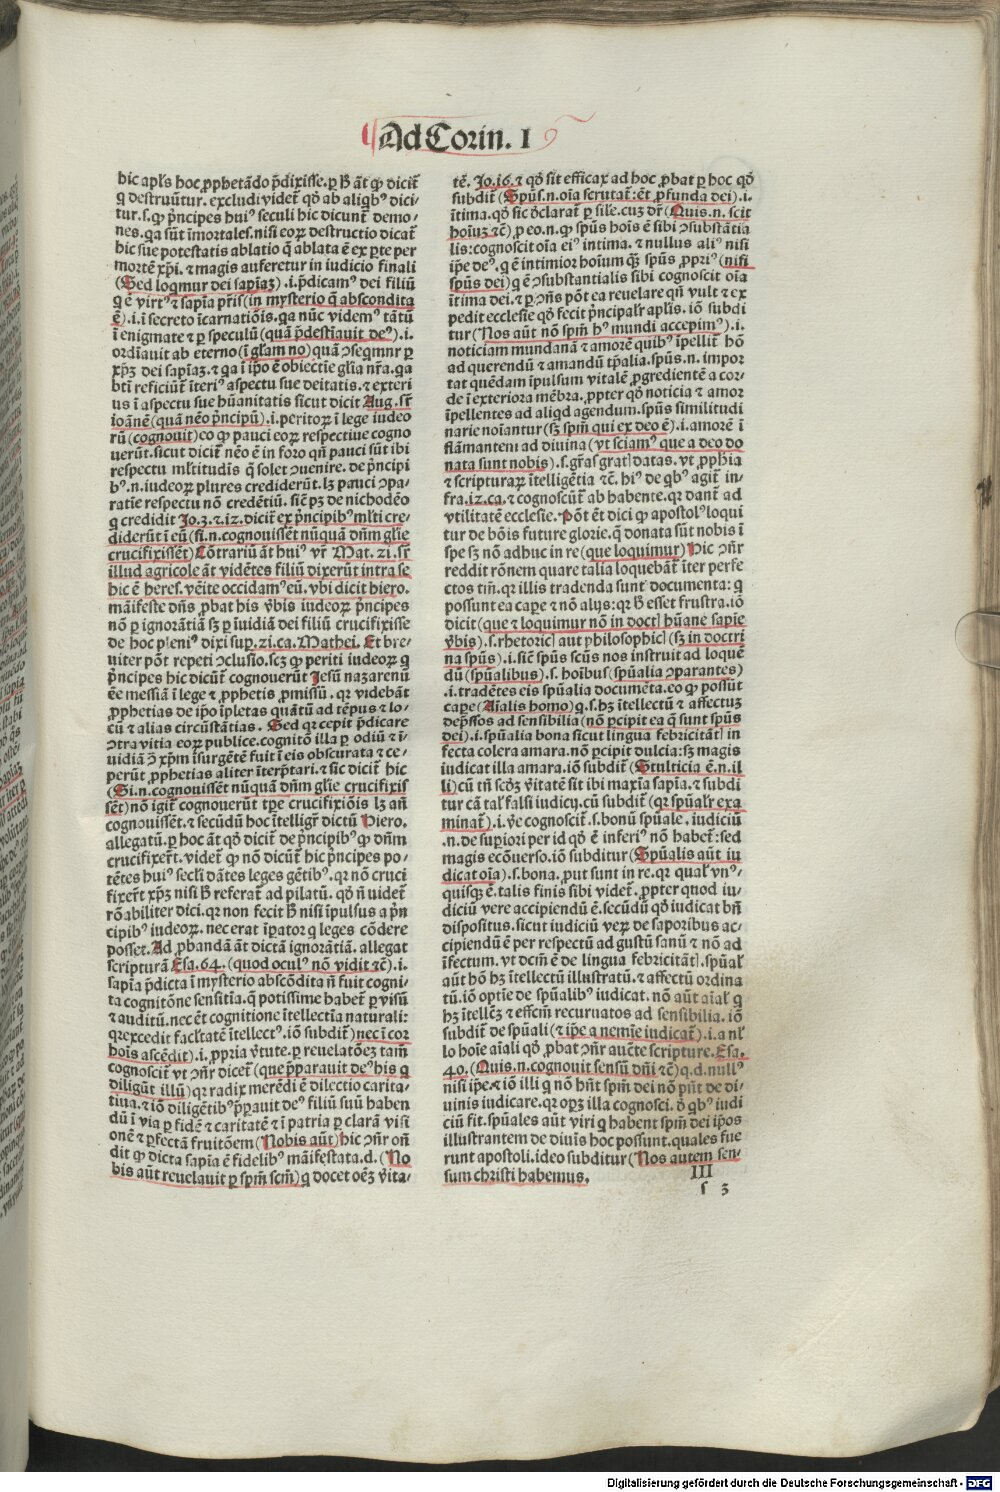 Ad Corin. I
hic apl's hoc ꝓphetādo p̄dixisse. ꝑ ħ āt ꝙ dicit᷑
q destruūtur. excludi videt᷑ qd̄ ab aliqbꝰ dici-
tur. s. ꝙ p̄ncipes huiꝰ seculi hic dicunt᷑ demo-
nes. qa sūt īmortales. nisi eoꝝ destructio dicat᷑
hic sue potestatis ablatio q̄ ablata ē ex ꝑte per
mortē xp̄i. ⁊ magis auferetur in iudicio finali
(Sed loqmur dei sapiaꝫ) .i. p̄dicamꝰ dei filiū
q ē virtꝰ ⁊ sapīa pr̄is (in mysterio q̄ abscondita
ē) .i. ī secreto īcarnatiōis. qa nūc videmꝰ tātū
ī enigmate ⁊ ꝑ speculū (quā p̄destiauit deꝰ) .i.
ordīauit ab eterno (ī gl'am no) quā ɔseqmnr ꝑ
xp̄ꝫ dei sapiaꝫ. ⁊ qa ī ip̄o ē obiectīe gl'ia nr̄a. qa
btī reficiūt᷑ īteriꝰ aspectu sue deitatis. ⁊ exteri
us ī aspectu sue hūanitatis sicut dicit Aug. sr̄
ioānē (quā nēo p̄ncipū) .i. peritoꝝ ī lege iudeo
rū (cognouit) eo ꝙ pauci eoꝝ respectiue cogno
uerūt. sicut dicit᷑ nēo ē in foro qn̄ pauci sūt ibi
respectu ml'titudīs q̄ solet ɔuenire. de p̄ncipi
bꝰ .n. iudeoꝝ plures crediderūt. lꝫ pauci ɔpa-
ratīe respectu nō credētiū. sic̄ pꝫ de nichodēo
q credidit Jo. 3. ⁊ .12. dicit᷑ ex p̄ncipibꝰ ml'ti cre-
diderūt ī eū (si .n. cognouissēt nūquā dn̄m gl'ie
crucifixissēt) Cōtrariū āt huiꝰ vr̄ Mat. 21. sr̄
illud agricole āt vidētes filiū dixerūt intra se
hic ē heres. vēite occidamꝰ eū. vbi dicit hiero.
māifeste dn̄s ꝓbat his v̄bis iudeoꝝ p̄ncipes
nō ꝑ ignorātiā sꝫ ꝑ īuidiā dei filiū crucifixisse
de hoc pleniꝰ dixi suꝑ. 21. ca. Mathei. Et bre-
uiter pōt repeti ɔclusio. scꝫ ꝙ periti iudeoꝝ q
p̄ncipes hic dicūt᷑ cognouerūt Jesū nazarenū
ēe messiā ī lege ⁊ ꝓphetis ꝓmissū. qꝛ videbāt
ꝓphetias de ip̄o īpletas quātū ad tēpus ⁊ lo-
cū ⁊ alias circūstātias. Sed qꝛ cepit p̄dicare
ɔtra vitia eoꝝ publice. cognitō illa ꝑ odiū ⁊ ī-
uidiā ꝯ̄ xp̄m īsurgētē fuit ī eis obscurata ⁊ ce-
perūt ꝓphetias aliter īterp̄tari. ⁊ sic dicit᷑ hic
(Si .n. cognouissēt nūquā dn̄m gl'ie crucifixis
sēt) nō igit᷑ cognouerūt tꝑe crucifixiōis lꝫ an̄
cognouissēt. ⁊ secūdū hoc ītelligr̄ dictū Hiero.
allegatū. ꝑ hoc āt qd̄ dicit᷑ de p̄ncipibꝰ ꝙ dn̄m
crucifixer̄t. videt᷑ ꝙ nō dicūt᷑ hic p̄ncipes po-
tētes huiꝰ secl'i dātes leges gētibꝰ. qꝛ nō cruci
fixer̄t xp̄ꝫ nisi ħ referat᷑ ad pilatū. qd̄ n̄ videt᷑
rōabiliter dici. qꝛ non fecit ħ nisi īpulsus a p̄n
cipibꝰ iudeoꝝ. nec erat īꝑator q leges cōdere
posset. Ad ꝓbandā āt dictā ignorātiā. allegat
scripturā Esa. 64. (quod oculꝰ nō vidit ⁊c̄) .i.
sapīa p̄dicta ī mysterio abscōdita n̄ fuit cogni-
ta cognitōne sensitīa. q̄ potissime habet᷑ ꝑ visū
⁊ auditū. nec ēt cognitione ītellectīa naturali:
qꝛ excedit facl'tatē ītellectꝰ. iō subdit᷑) nec ī cor
hoīs ascēdit) .i. ꝓpria v̄tute. ꝑ reuelatōeꝫ tam̄
cognoscit᷑ vt ɔn̄r dicet᷑ (que p̄parauit deꝰ his q
diligūt illū) qꝛ radix merēdi ē dilectio carita-
tiua. ⁊ iō diligētibꝰ p̄parauit deꝰ filiū suū haben
dū ī via ꝑ fidē ⁊ caritatē ⁊ ī patria ꝑ clarā visi
onē ⁊ ꝑfectā fruitōem (Nobis aūt) hic ɔn̄r on̄
dit ꝙ dicta sapīa ē fidelibꝰ māifestata. d. (No
bis aūt reuelauit ꝑ spm̄ scm̄) q docet oēꝫ v̄ita-
tē. Jo. 16. ⁊ qd̄ sit efficax ad hoc ꝓbat ꝑ hoc qd̄
subdit᷑ (Spūs .n. oīa scrutat᷑: ēt ꝓfunda dei) .i.
ītima. qd̄ sic d̄clarat᷑ ꝑ sil'e. cuꝫ dr̄ (Quis .n. scit
hoīuꝫ ⁊c̄) ꝓ eo .n. ꝙ spūs hoīs ē sibi ɔsubstātia
lis: cognoscit oīa eiꝰ intima. ⁊ nullus aliꝰ nisi
ip̄e deꝰ. q ē intimior hoīum qꝫ spūs ꝓpriꝰ (nisi
spūs dei) q ē ɔsubstantialis sibi cognoscit oīa
ītima dei. ⁊ ꝑ ɔn̄s pōt ea reuelare qn̄ vult ⁊ ex
pedit ecclesie qd̄ fecit p̄ncipal'r apl'is. iō subdi
tur (Nos aūt nō spm̄ hꝰ mundi accepimꝰ) .i.
noticiam mundanā ⁊ amorē quibꝰ īpellit᷑ hō
ad querendū ⁊ amandū tp̄alia. spūs .n. impor
tat quēdam īpulsum vitalē ꝓgredientē a cor-
de ī exteriora mēbra. ꝓpter qd̄ noticia ⁊ amor
īpellentes ad aliqd agendum. spūs similitudi
narie noīantur (sꝫ spm̄ qui ex deo ē) .i. amorē ī
flāmantem ad diuina (vt sciamꝰ que a deo do
nata sunt nobis) .s. gr̄as gratꝭ datas. vt ꝓphīa
⁊ scripturaꝝ ītelligētia ⁊c̄. hiꝰ de qbꝰ agit᷑ in-
fra. 12. ca. ⁊ cognoscūt᷑ ab habente. qꝛ dant᷑ ad
vtilitatē ecclesie. Pōt ēt dici ꝙ apostolꝰ loqui
tur de bōis future glorie. q̄ donata sūt nobis ī
spe sꝫ nō adhuc in re (que loquimur) Hic ɔn̄r
reddit rōnem quare talia loquebāt᷑ īter perfe
ctos tm̄. qꝛ illis tradenda sunt documenta: q
possunt ea caꝑe ⁊ nō alijs: qꝛ ħ esset frustra. iō
dicit (que ⁊ loquimur nō in doctꝭ hūane sapīe
v̄bis) .s. rhetoricꝭ aut philosophicꝭ (sꝫ in doctri
na spūs) .i. sic̄ spūs scūs nos instruit ad loquē
dū (spūalibus) .s. hoībus (spūalia ɔparantes)
.i. tradētes eis spūalia documēta. eo ꝙ possūt
caꝑe (Aīalis homo) q .s. hꝫ ītellectū ⁊ affectuꝫ
dep̄ssos ad sensibilia (nō ꝑcipit ea q̄ sunt spūs
dei) .i. spūalia bona sicut lingua febricitātꝭ in
fecta colera amara. nō ꝑcipit dulcia: sꝫ magis
iudicat illa amara. iō subdit᷑ (Stulticia ē .n. il
li) cū tn̄ scd̄ꝫ v̄itatē sit ibi maxīa sapīa. ⁊ subdi
tur cā tal' falsi iudicij. cū subdit᷑ (qꝛ spūal'r exa
minat᷑) .i. v̄e cognoscit᷑ .s. bonū spūale. iudiciū
.n. de suꝑiori per id qd̄ ē inferiꝰ nō habet᷑: sed
magis ecōuerso. iō subditur (Spūalis aūt iu
dicat oīa) .s. bona. ꝓut sunt in re. qꝛ qual' vnꝰ-
quisqꝫ ē. talis finis sibi videt᷑. ꝓpter quod iu-
diciū vere accipiendū ē. secūdū qd̄ iudicat bn̄
dispositus. sicut iudiciū veꝝ de saporibus ac-
cipiendū ē per respectū ad gustū sanū ⁊ nō ad
īfectum. vt dcm̄ ē de lingua febricitātꝭ. spūal'
aūt hō hꝫ ītellectū illustratū. ⁊ affectū ordina
tū. iō optīe de spūalibꝰ iudicat. nō aūt aīal' q
hꝫ ītellc̄ꝫ ⁊ effcm̄ recuruatos ad sensibilia. iō
subdit᷑ de spūali (⁊ ip̄e a nemīe iudicat᷑) .i. a nl'
lo hoīe aīali qd̄ ꝓbat ɔn̄r auc̄te scripture. Esa.
40. (Quis .n. cognouit sensū dn̄i ⁊c̄) q. d. nullꝰ
nisi ip̄e. ⁊ iō illi q nō hn̄t spm̄ dei nō pn̄t de di-
uinis iudicare. qꝛ opꝫ illa cognosci. d̄ qbꝰ iudi
ciū fit. spūales aūt viri q habent spm̄ dei ip̄os
illustrantem de diuīs hoc possunt. quales fue
runt apostoli. ideo subditur (Nos autem sen-
sum christi habemus.
III
s 3
Digitalisierung gefördert durch die Deutsche Forschungsgemeinschaft - DFG